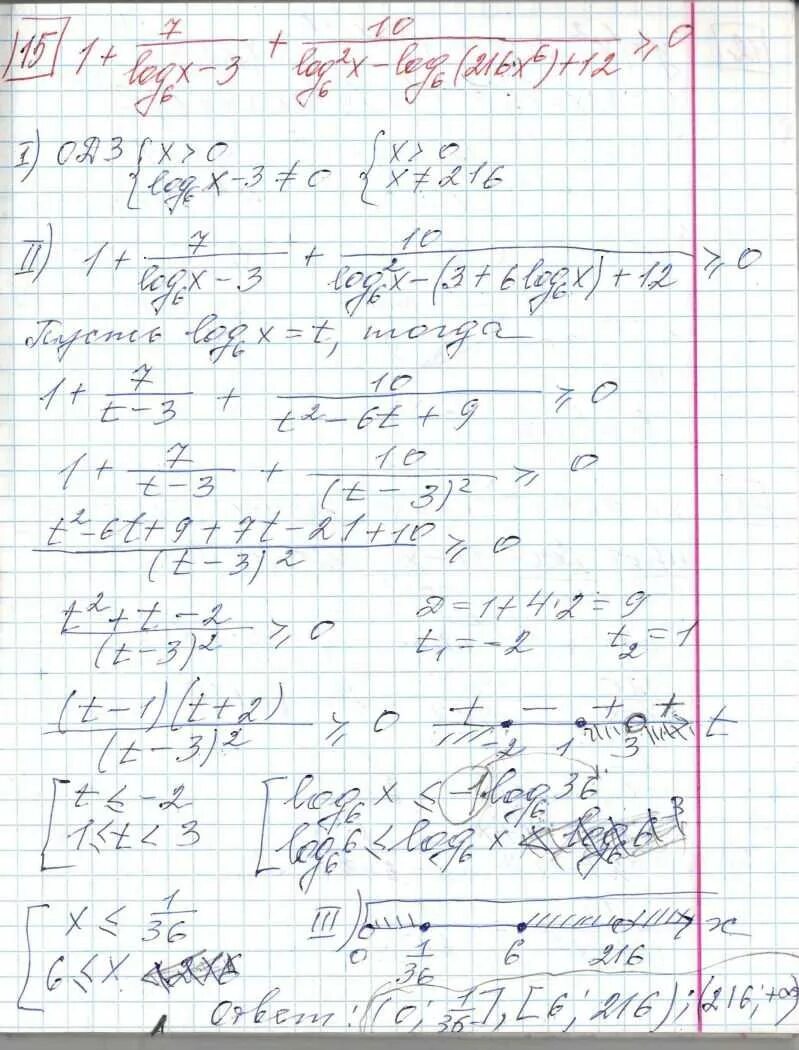 15 1 + 7/(log₆x − 3) + 10/(log₆²x − log₆(216x⁶) + 12) ≥ 0
I) ОДЗ { x > 0 { x > 0
log₆x − 3 ≠ 0 x ≠ 216
II) 1 + 7/(log₆x − 3) + 10/(log₆²x − (3 + 6log₆x) + 12) ≥ 0
Пусть log₆x = t, тогда
1 + 7/(t − 3) + 10/(t² − 6t + 9) ≥ 0
1 + 7/(t − 3) + 10/(t − 3)² ≥ 0
(t² − 6t + 9 + 7t − 21 + 10)/(t − 3)² ≥ 0
(t² + t − 2)/(t − 3)² ≥ 0 D = 1 + 4·2 = 9
t₁ = −2 t₂ = 1
(t − 1)(t + 2)/(t − 3)² ≥ 0 + − + +
−2 1 3 t
[ t ≤ −2 [ log₆x ≤ −1 log₆36
1 ≤ t < 3 log₆6 ≤ log₆x < log₆6³
[ x ≤ 1/36 III) x
6 ≤ x 0 1/36 6 216
Ответ: (0; 1/36], [6; 216); (216; +∞)